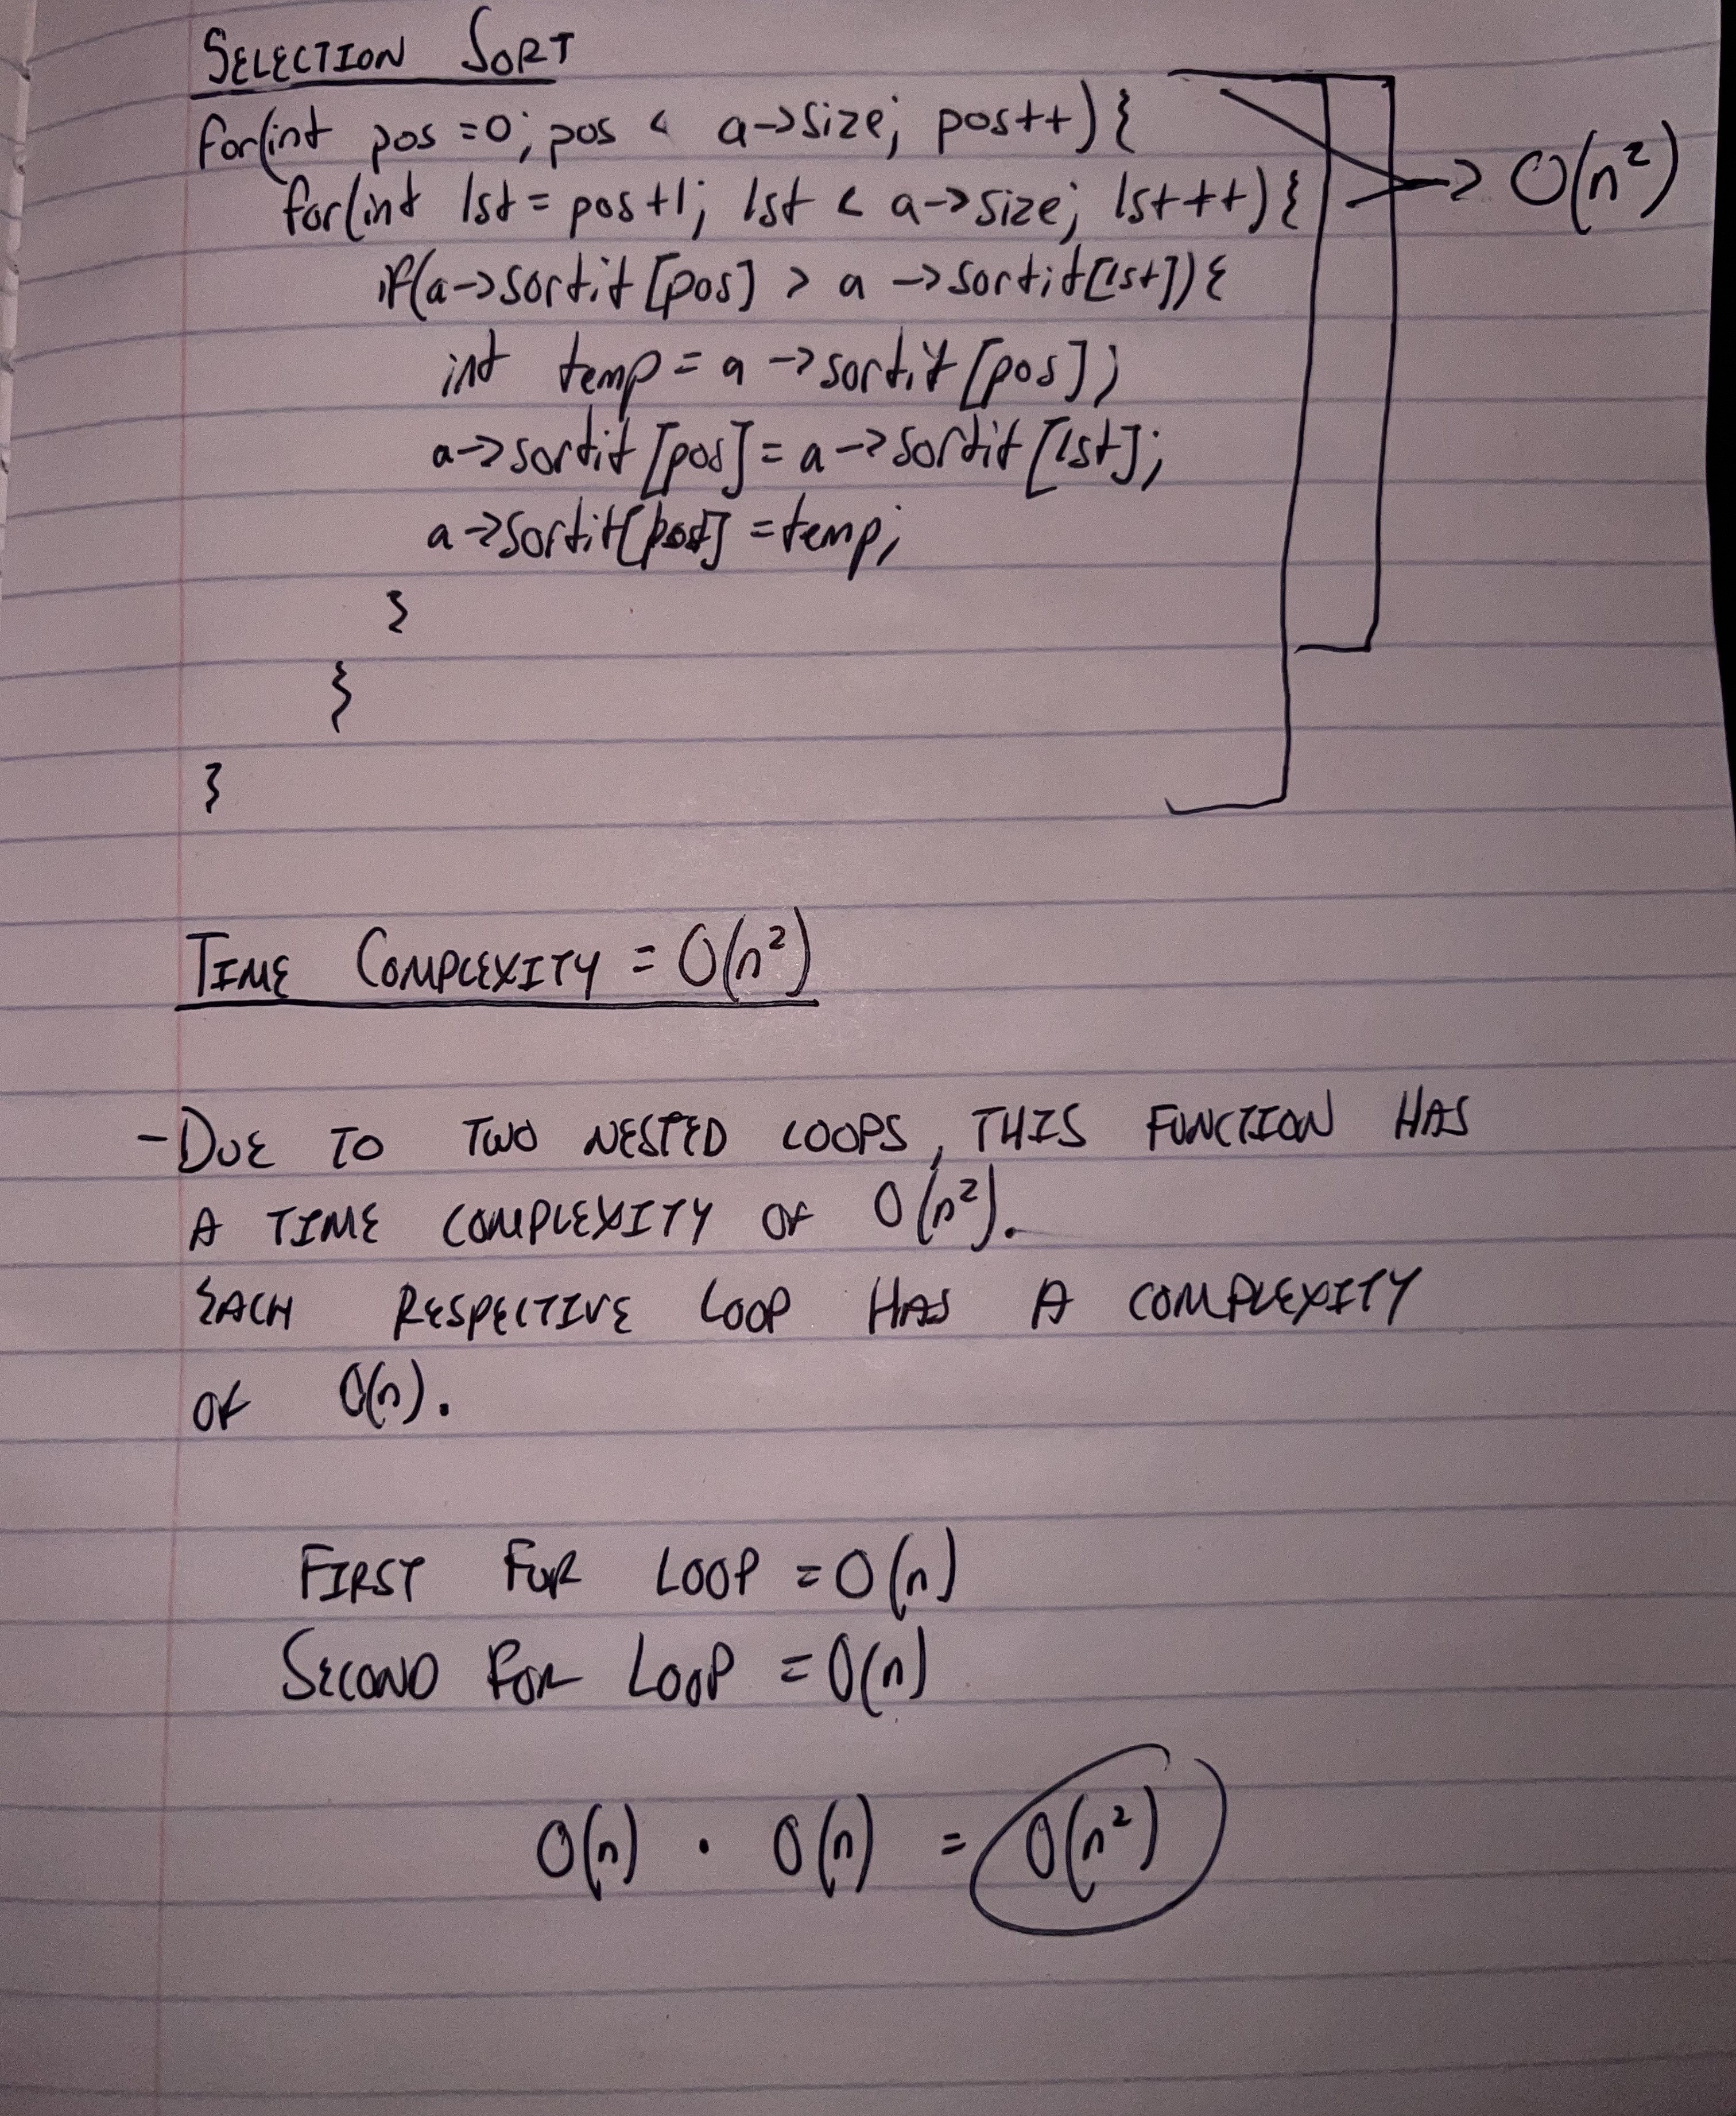 SELECTION SORT
for(int pos = 0; pos < a->size; pos++) {
for(int lst = pos+1; lst < a->size; lst++) {
if(a->sortit[pos] > a->sortit[lst]) {
int temp = a->sortit[pos];
a->sortit[pos] = a->sortit[lst];
a->sortit[] = temp;
}
}
}
-> O(n²)
TIME COMPLEXITY = O(n²)
- DUE TO TWO NESTED LOOPS, THIS FUNCTION HAS
A TIME COMPLEXITY OF O(n²).
EACH RESPECTIVE LOOP HAS A COMPLEXITY
OF O(n).
FIRST FOR LOOP = O(n)
SECOND FOR LOOP = O(n)
O(n) · O(n) = O(n²)